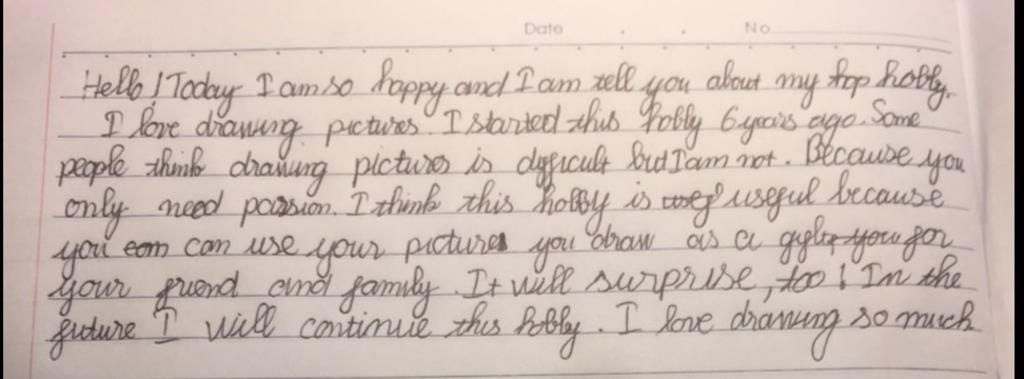 Date No
Hello! Today I am so happy and I am tell you about my top hobby.
I love drawing pictures. I started this hobby 6 years ago. Some
people think drawing pictures is difficult but I am not. Because you
only need passion. I think this hobby is useful because
you can use your pictures you draw as a gift for
your friend and family. It will surprise, too! In the
future I will continue this hobby. I love drawing so much